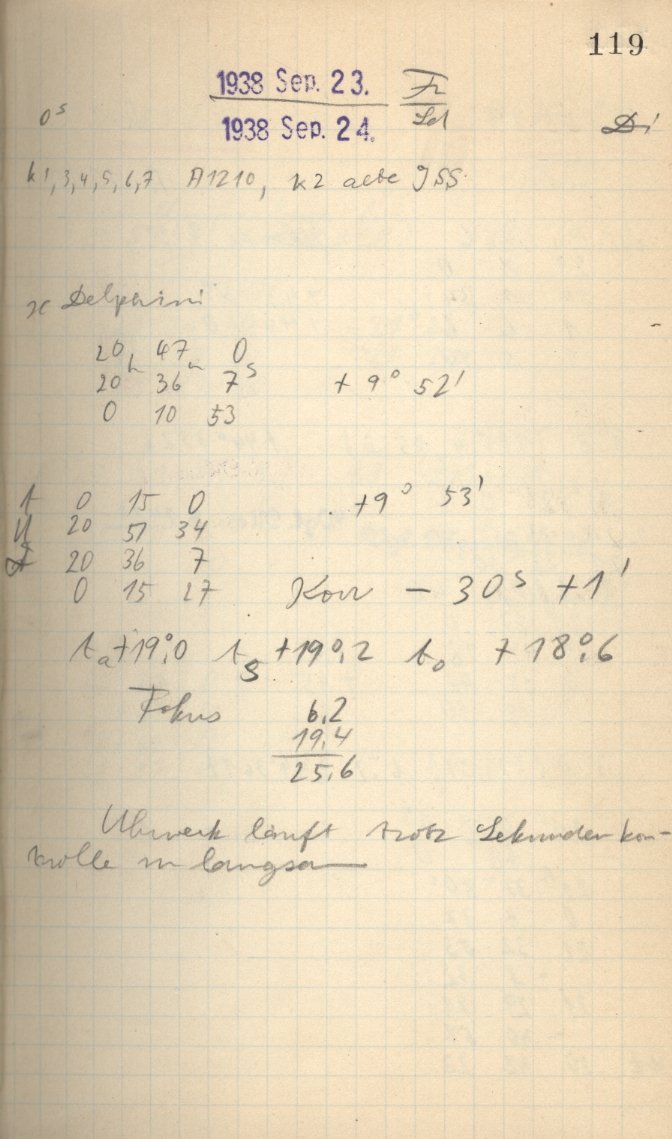 119
1938 Sep. 23. Fr
0ˢ 1938 Sep. 24. Di
k1,3,4,5,6,7 A1210, k2 alte JSS
ϰ Delphini
20ʰ 47ᵐ 0ˢ
20 36 7 + 9° 52'
0 10 53
t 0 15 0 +9° 53'
U 20 51 34
20 36 7
0 15 27 Korr − 30ˢ +1'
tₐ +19°,0 t +19°,2 t₀ +18°,6
Fokus 6,2
19,4
25,6
Uhrwerk läuft trotz Sekundenkon-
trolle zu langsam